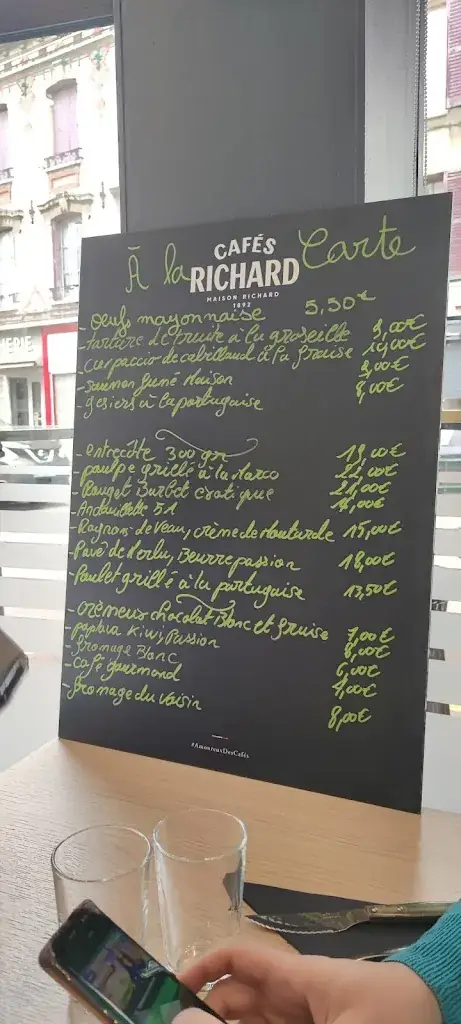 À la Carte
CAFÉS
RICHARD
MAISON RICHARD
1892
- Oeufs mayonnaise 5,50€
- Tartare de truite à la groseille 9,00€
- Carpaccio de cabillaud à la fraise 14,00€
- Saumon fumé Maison 9,00€
- gesiers à la portugaise 8,00€
- entrecôte 300 gr 19,00€
- poulpe grillé à la Marco 22,00€
- Rouget Barbet exotique 21,00€
- Andouillette 5A 16,00€
- Rognons de Veau, crème de Moutarde 15,00€
- Pavé de Merlu, Beurre passion 18,00€
- Poulet grillé à la portugaise 13,50€
- Crémeux chocolat Blanc et fruise 7,00€
- papaya Kiwi, Passion 8,00€
- fromage Blanc 6,00€
- café gourmand 9,00€
- fromage du voisin 8,00€
#AmoureuxDesCafés
ERIE